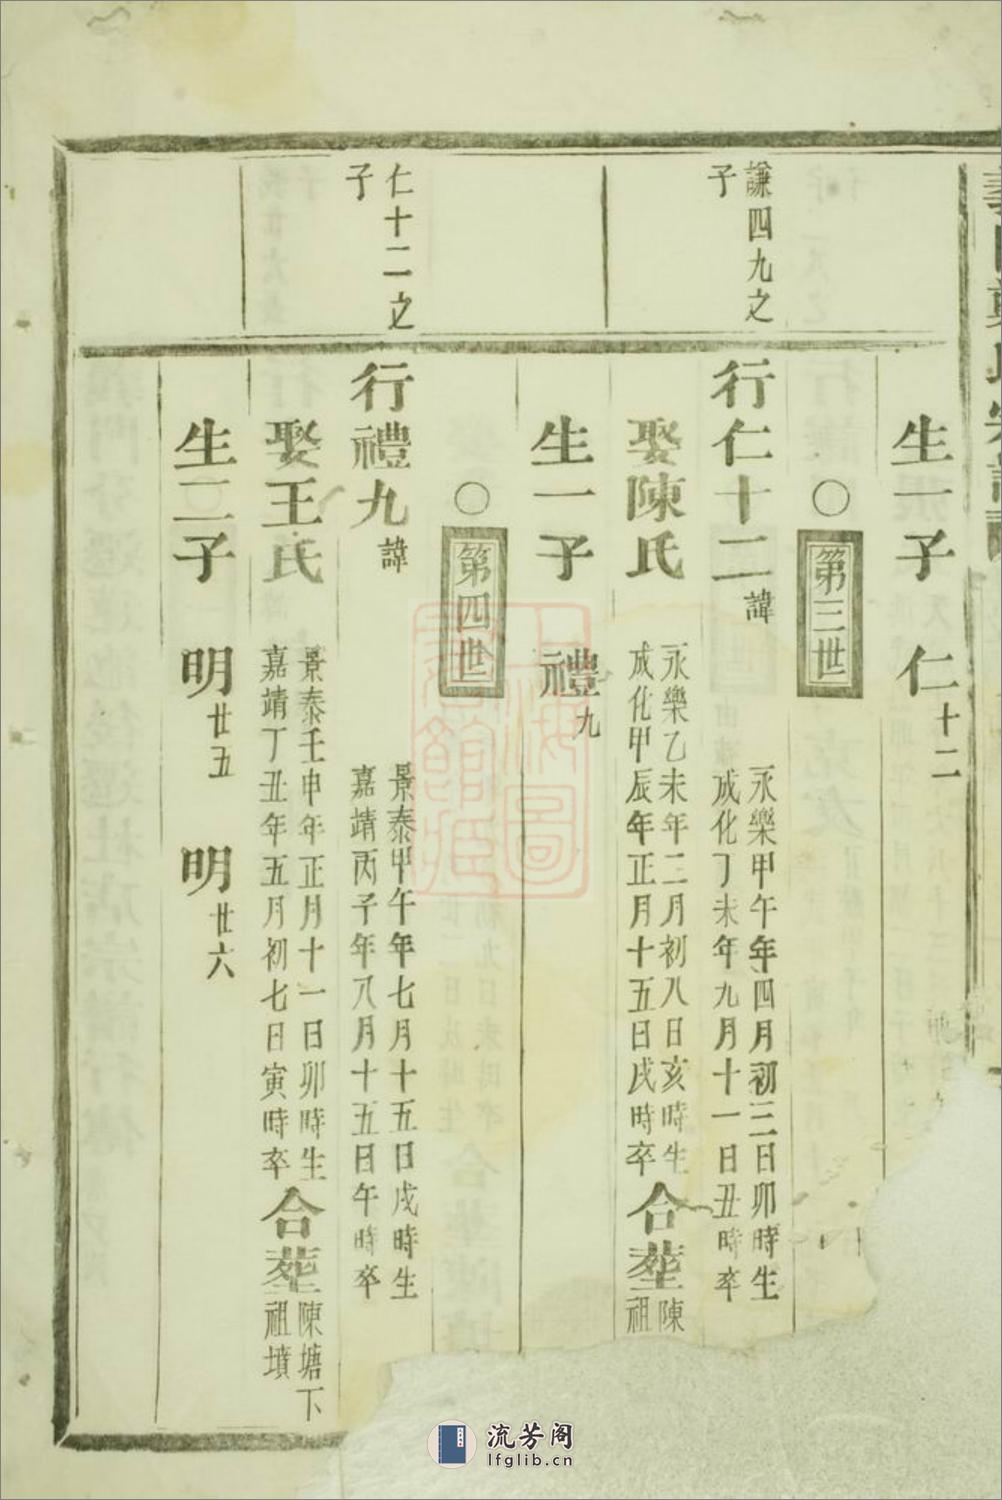 生一子 仁十二
○ 第三世
謙四九之
子
行仁十二諱
永樂甲午年四月初三日卯時生
成化丁未年九月十一日丑時卒
娶陳氏
永樂乙未年二月初八日亥時生
成化甲辰年正月十五日戌時卒
合塟
陳
祖
生一子 禮九
○ 第四世
仁十二之
子
行禮九諱
景泰甲午年七月十五日戌時生
嘉靖丙子年八月十五日午時卒
娶王氏
景泰壬申年正月十一日卯時生
嘉靖丁丑年五月初七日寅時卒
合塟
陳塘下
祖墳
生二子 明廿五 明廿六
流芳阁
lfglib.cn